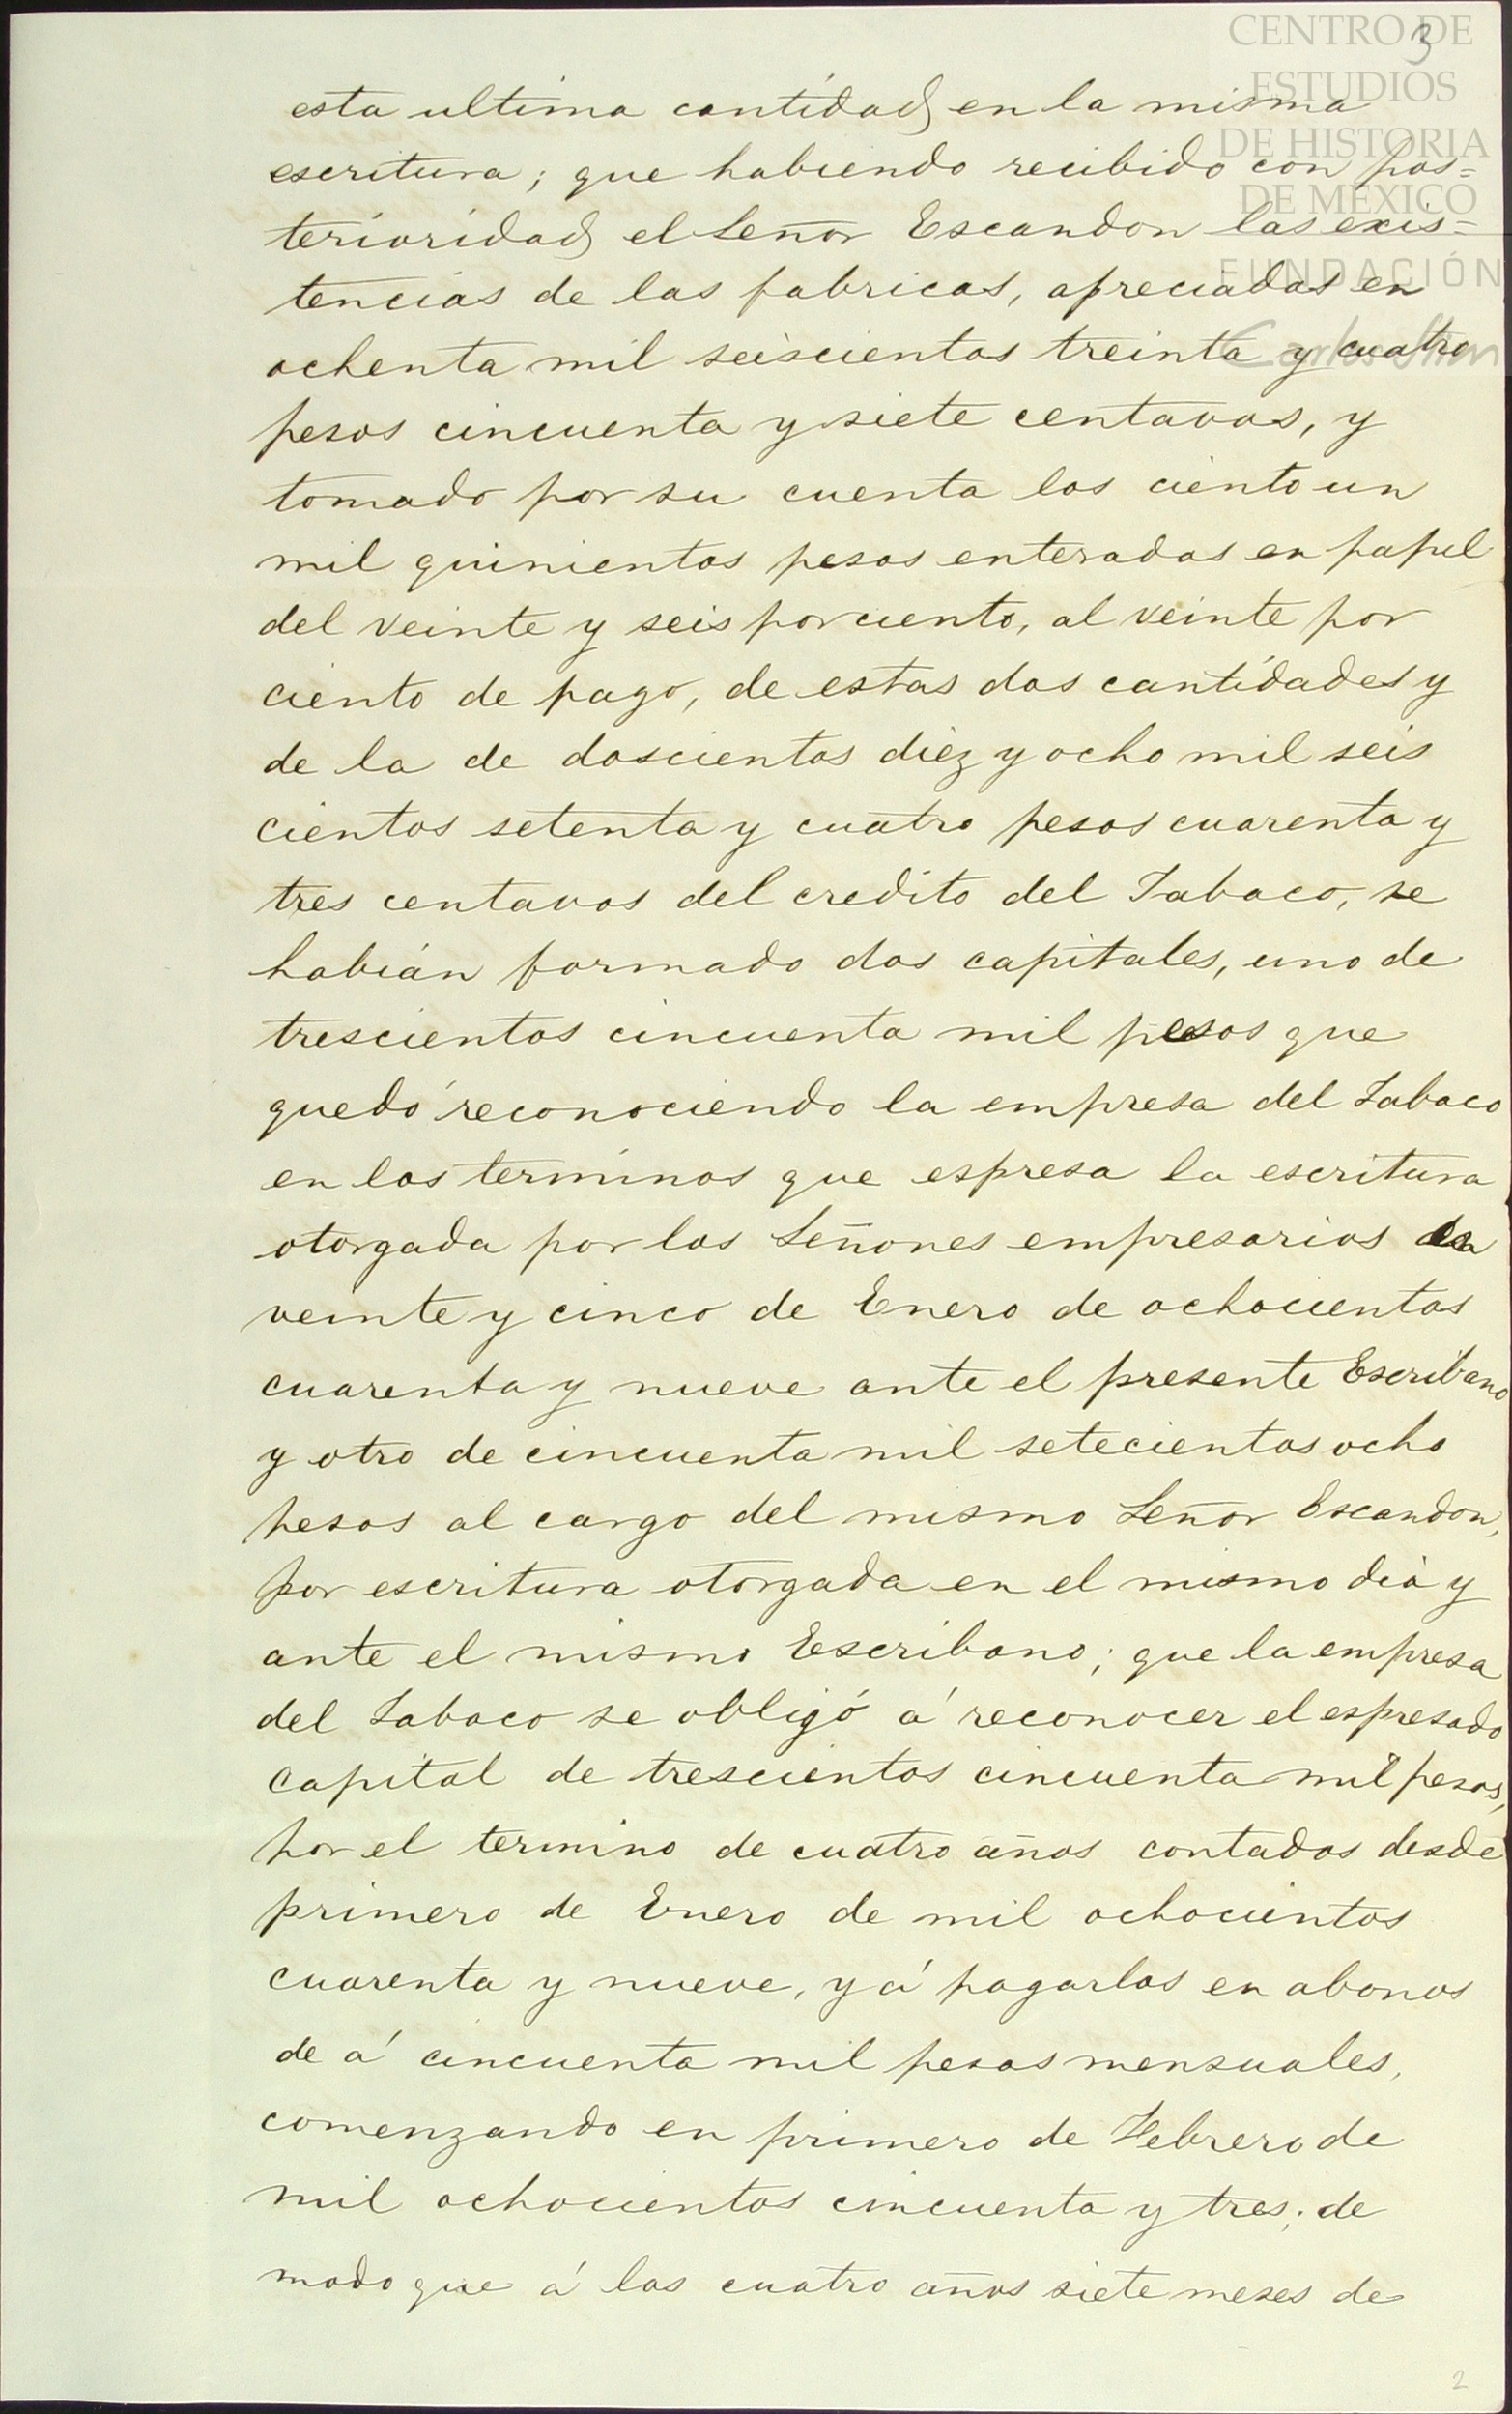 CENTRO DE
ESTUDIOS
DE HISTORIA
DE MÉXICO
FUNDACIÓN
Carlos Slim
3
esta ultima cantidad en la misma
escritura; que habiendo recibido con pos=
terioridad el Señor Escandon las exis=
tencias de las fabricas, apreciadas en
ochenta mil seiscientos treinta y cuatro
pesos cincuenta y siete centavos, y
tomado por su cuenta los ciento un
mil quinientos pesos enterados en papel
del veinte y seis por ciento, al veinte por
ciento de pago, de estas dos cantidades y
de la de doscientos diez y ocho mil seis
cientos setenta y cuatro pesos cuarenta y
tres centavos del credito del Tabaco, se
habián formado dos capitales, uno de
trescientos cincuenta mil pesos que
quedó reconociendo la empresa del Tabaco
en los terminos que espresa la escritura
otorgada por los Señones empresarios en
veinte y cinco de Enero de ochocientos
cuarenta y nueve ante el presente Escribano
y otro de cincuenta mil setecientos ocho
pesos al cargo del mismo Señor Escandon,
por escritura otorgada en el mismo dia y
ante el mismo Escribano; que la empresa
del Tabaco se obligó á reconocer el espresado
capital de trescientos cincuenta mil pesos,
por el termino de cuatro años contados desde
primero de Enero de mil ochocientos
cuarenta y nueve, y á pagarlos en abonos
de á cincuenta mil pesos mensuales,
comenzando en primero de Febrero de
mil ochocientos cincuenta y tres; de
modo que á los cuatro años siete meses de
2